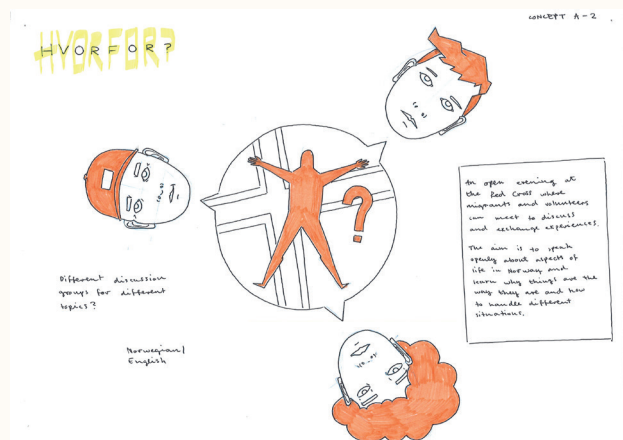 CONCEPT A-2
HVORFOR?
HVORFOR?
?
An open evening at
the Red Cross where
migrants and volunteers
can meet to discuss
and exchange experiences.
The aim is to speak
openly about aspects of
life in Norway and
learn why things are the
way they are and how
to handle different
situations.
Different discussion
groups for different
topics?
Norwegian/
English